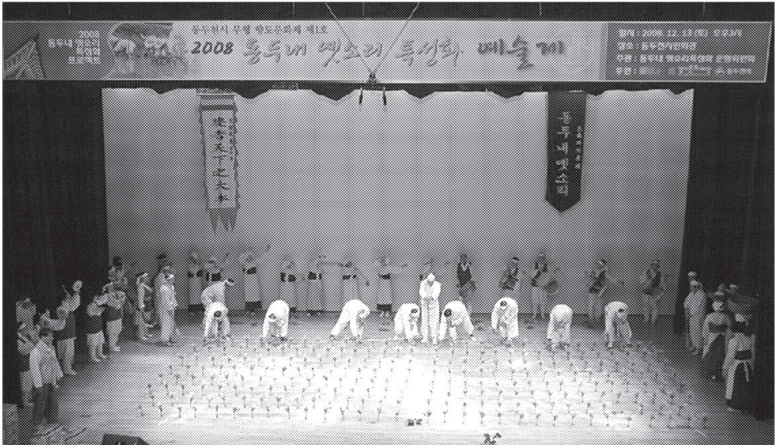 2008
동두내 옛소리
특성화
프로젝트
동두천시 무형 향토문화재 제1호
2008 동두내 옛소리 특성화 예술제
일시 : 2008. 12. 13 (토) 오후3시
장소 : 동두천시민회관
주관 : 동두내 옛소리특성화 운영위원회
주최 : 동두천시
農者天下之大本
동두내옛소리